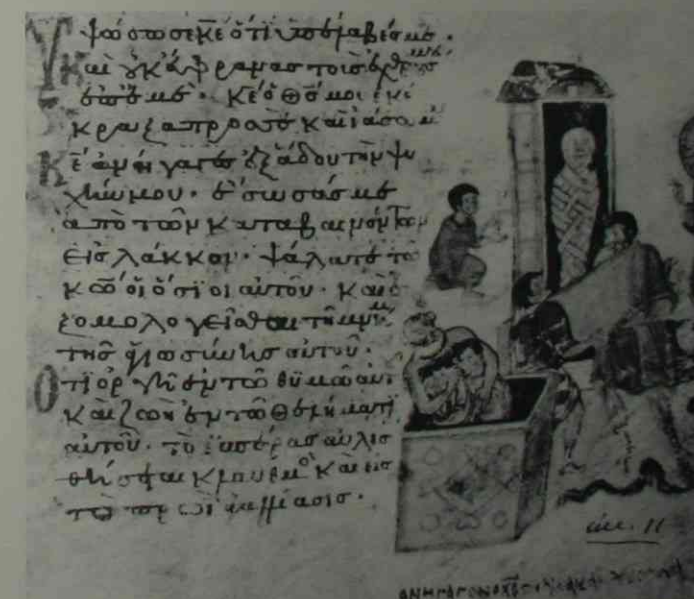 Ὑψώσω σε κε ὅτι ὑπέλαβές με ·
Καὶ οὐκ εὔφρανας τοὺς ἐχθρούς
ἐπ' ἐμέ · κε ὁ θς μου ἐκέ
κραξα πρὸς σὲ καὶ ἰάσω
Κε ἀνήγαγες ἐξ ἅδου τὴν ψυ
χήν μου · ἔσωσάς με
ἀπὸ τῶν καταβαινόντων
εἰς λάκκον · ψάλατε τῷ
κῶ οἱ ὅσϊοι αὐτοῦ · καὶ ἐ
ξομολογεῖσθαι τῆ μνήμη
τῆς ἁγιωσύνης αὐτοῦ ·
Ὅτι ὀργὴ ἐν τῶ θυμῶ αὐτ
Καὶ ζωὴ ἐν τῶ θελήματι
αὐτοῦ · τὸ ἑσπέρας αὐλισ
θήσεται κλαυθμὸς καὶ εἰς
τὸ πρωῒ ἀγαλλίασις ·